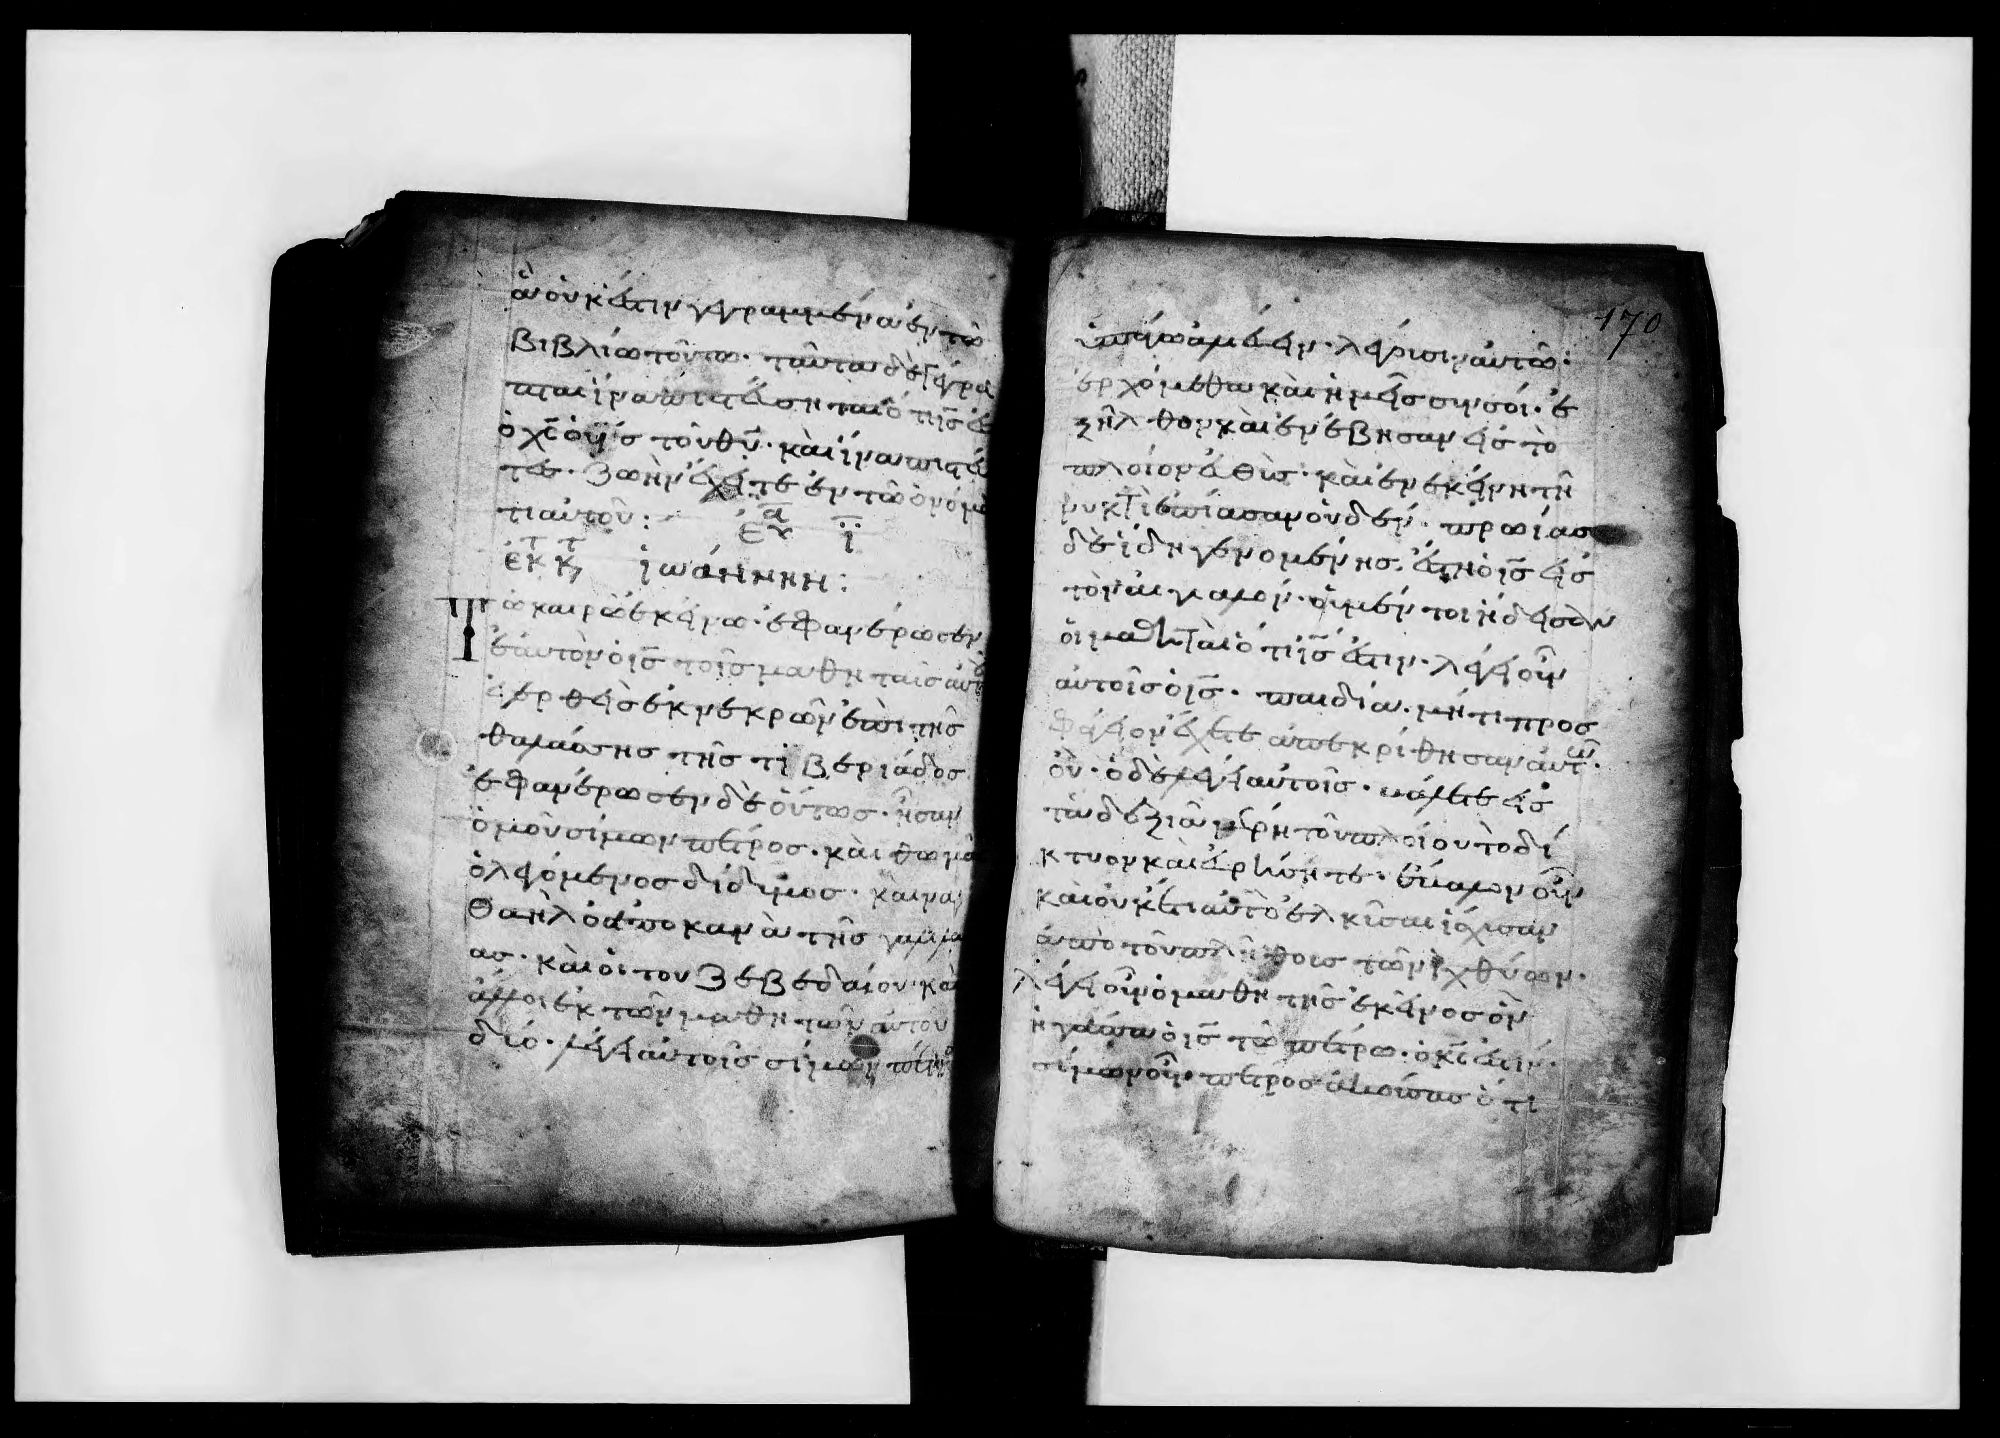 ἃ οὐκ ἔστιν γεγραμμένα ἐν τῶ
βιβλίω τούτω· ταῦτα δὲ γέγρα
πται ἵνα πιστεύσηται ὅτι ις ἐ
ὁ χς ὁ υις τοῦ θυ· καὶ ἵνα πιστεύ
τες· ζωὴν ἔχητε ἐν τῶ ὀνόμα
τι αὐτοῦ:
ἰωάννην:
Τῶ καιρῶ ἐκείνω· ἐφανέρωσεν
ἑαυτὸν ὁ ις τοῖς μαθηταὶς αὐτου
ἐγερθεὶς ἐκ νεκρῶν ἐπὶ τῆς
θαλάσσης τῆς τιβεριάδος
ἐφανέρωσεν δὲ οὕτως· ἦσαν
ὁμοῦ σίμων πέτρος· καὶ θωμᾶ
ὁ λεγόμενος δίδιμος· καὶ να
θαηλ ὁ ἀπο κανὰ τῆς γαλιλαί
ας· καὶ οἱ του ζεβεδαίου· καὶ
άλλοι ἐκ τῶν μαθητῶν αὐτου
διό· λέγει αὐτοῖς σίμων πέτρο
170
ὑπάγω ἁλιέυειν· λέγουσιν αὐτῶ:
ἐρχόμεθα καὶ ἡμεῖς συν σοί· ἐ
ξῆλθον καὶ ἐνέβησαν εἰς τὸ
πλοίον ἐυθὺς· καὶ ἐν ἐκείνη τῆ
νυκτὶ ἐπίασαν ὀυδεν· πρωίας
δὲ ἰδη γενομένης· ἔστη ὁ ις εἰς
τὸν αἰγιαλόν· ὀυ μέν τοι ἤδεισαν
οἱ μαθηταὶ ὅτι ις ἐστιν· λέγει οὖν
αὐτοῖς ὁ ις· παιδία· μή τι προς
φάγιον ἔχετε ἀπεκρίθησαν αὐτῶ·
ὀυ· ὁ δὲ λέγει αὐτοῖς· βάλετε εἰς
τὰ δεξιὰ μέρη τοῦ πλοίου τὸ δί
κτυον καὶ εὑρήσητε· ἔβαλον οὖν
καὶ ὀυκέτι αὐτὸ ἑλκῦσαι ἴσχυσαν
ἀπὸ τοῦ πλήθους τῶν ἰχθύων·
λέγει οὖν ὁ μαθητὴς ἐκεῖνος ὃν
ἠγάπα ὁ ις τῶ πέτρω· ὁ κς ἐστιν·
σίμων οὖν πέτρος ἀκούσας ὅτι